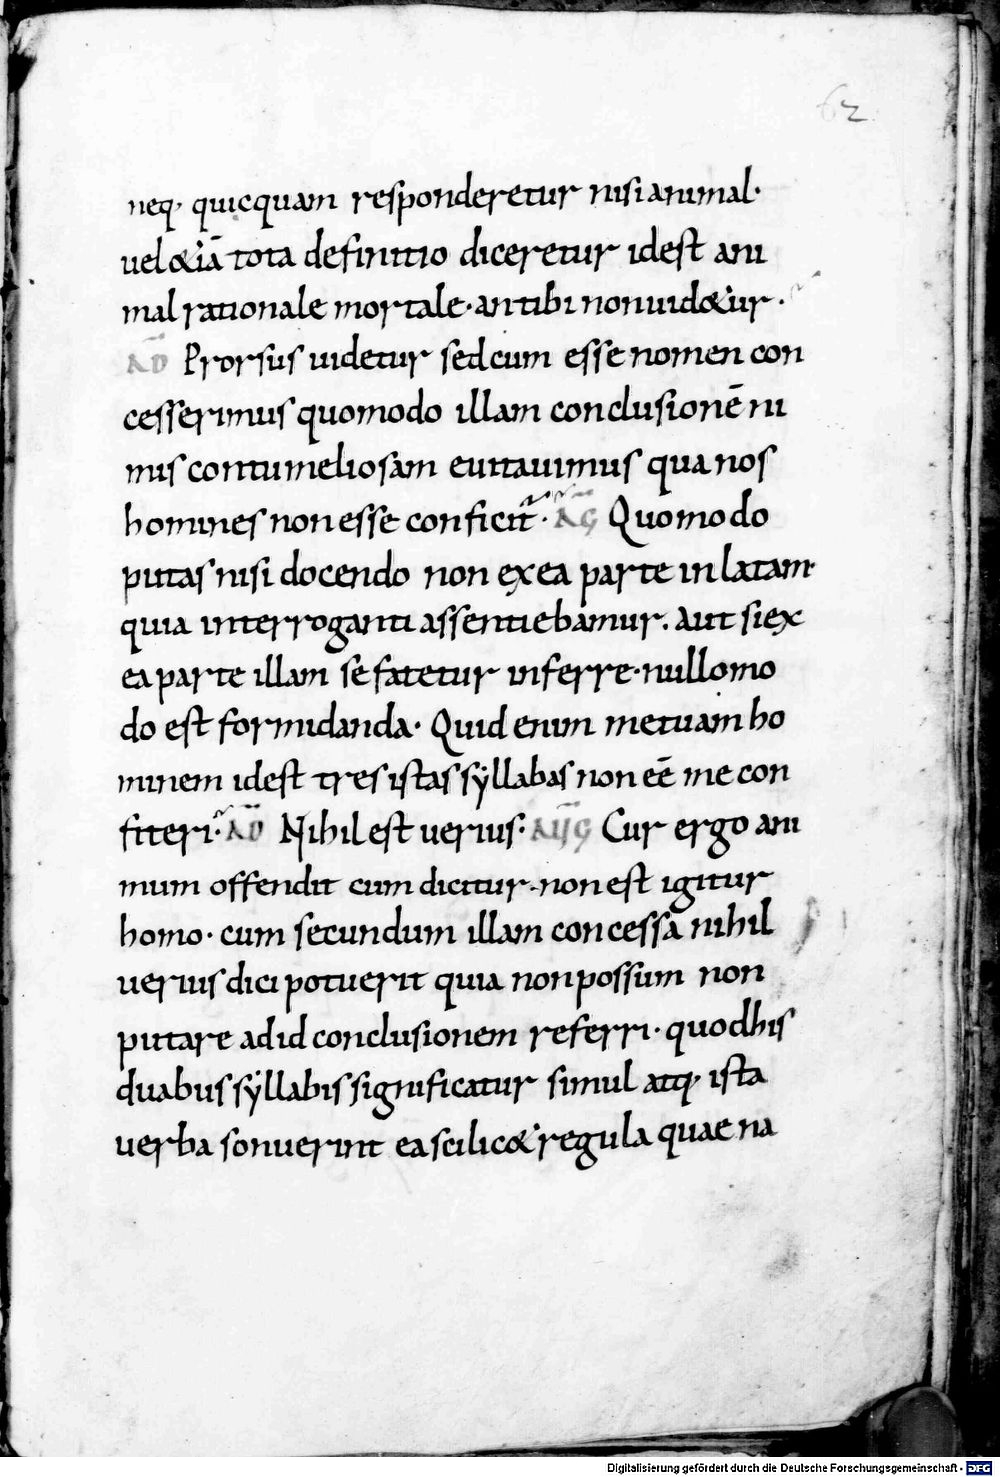 62
neq· quicquam responderetur nisi animal·
uel &iā tota definitio diceretur idest ani
mal rationale mortale· an tibi non uid&ur·
AD Prorsus uidetur sed cum esse nomen con
cesserimus quomodo illam conclusionē ni
mis contumeliosam euitauimus qua nos
homines non esse conficit̄· AG Quomodo
putas nisi docendo non ex ea parte inlatam
quia interroganti assentiebamur. Aut si ex
ea parte illam se fatetur inferre· nullo mo
do est formidanda· Quid enim metuam ho
minem idest tres istas syllabas non eē me con
fiteri· AD Nihil est uerius· AUG Cur ergo ani
mum offendit cum dicitur· non est igitur
homo· cum secundum illam concessā nihil
uerius dici potuerit quia non possum non
putare ad id conclusionem referri· quod his
duabus syllabis significatur simul atq· ista
uerba sonuerint ea scilic& regula quae na
Digitalisierung gefördert durch die Deutsche Forschungsgemeinschaft - DFG